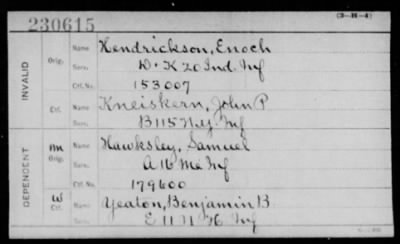 230615
(3-H-4)
INVALID
Orig.
Name Hendrickson, Enoch
Serv. D. K 20 Ind. Inf
Ctf. No. 153007
Ctf.
Name Kneiskern, John P
Serv. B 115 N.Y. Inf
DEPENDENT
m Orig.
Name Hawksley, Samuel
Serv. A 16 Me Inf
Ctf. No. 179600
W Ctf.
Name Yeaton, Benjamin B
Serv. E 11 N H Inf